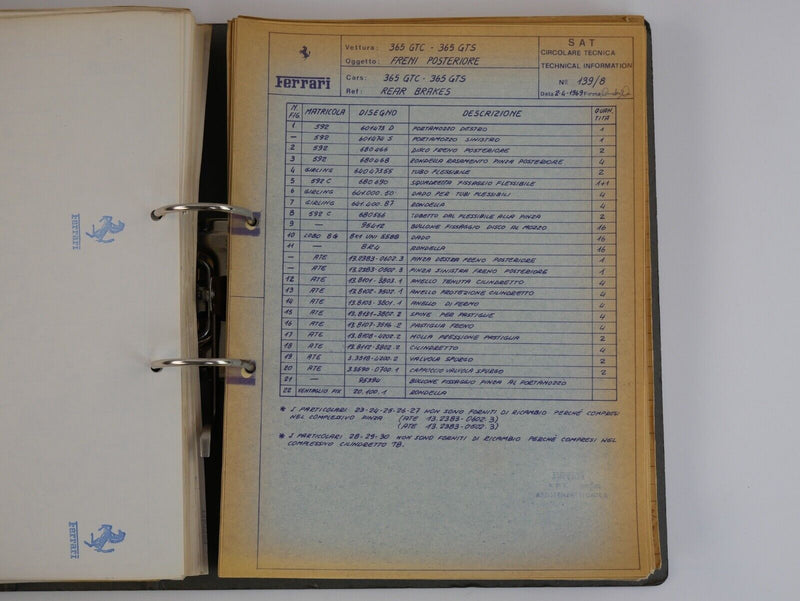 Ferrari
Vettura: 365 GTC - 365 GTS
Oggetto: FRENI POSTERIORE
Cars: 365 GTC - 365 GTS
Ref: REAR BRAKES
SAT
CIRCOLARE TECNICA
TECHNICAL INFORMATION
No 139/8
Data 2-4-1969 Firma
N FIG MATRICOLA DISEGNO DESCRIZIONE QUANTITÀ
1 592 601473 D PORTAMOZZO DESTRO 1
— 592 601474 S PORTAMOZZO SINISTRO 1
2 592 680466 DISCO FRENO POSTERIORE 2
3 592 680468 RONDELLA RASAMENTO PINZA POSTERIORE 4
4 GIRLING TUBO FLESSIBILE 2
5 592 C 680690 SQUADRETTA FISSAGGIO FLESSIBILE 1+1
6 GIRLING DADO PER TUBI FLESSIBILI 4
7 GIRLING RONDELLA 4
8 592 C TUBETTO DAL FLESSIBILE ALLA PINZA 2
9 — 95412 BULLONE FISSAGGIO DISCO AL MOZZO 16
10 LOBO 8G 8M UNI 5588 DADO 16
11 — 8R4 RONDELLA 16
— ATE 13.2383-0602.3 PINZA DESTRA FRENO POSTERIORE 1
— ATE 13.2383-0502.3 PINZA SINISTRA FRENO POSTERIORE 1
12 ATE 13.8101-3803.1 ANELLO TENUTA CILINDRETTO 4
13 ATE 13.8102-3502.1 ANELLO PROTEZIONE CILINDRETTO 4
14 ATE 13.8103-3801.1 ANELLO DI FERMO 4
15 ATE 13.8121-3802.2 SPINE PER PASTIGLIE 4
16 ATE PASTIGLIA FRENO 4
17 ATE 13.8108-4202.2 MOLLA PRESSIONE PASTIGLIA 2
18 ATE 13.8112-3802.2 CILINDRETTO 4
19 ATE 3.3318-4200.2 VALVOLA SPURGO 2
20 ATE 3.3590-0700.1 CAPPUCCIO VALVOLA SPURGO 2
21 — 95394 BULLONE FISSAGGIO PINZA AL PORTAMOZZO
22 VENTAGLIO FIX 20.100.1 RONDELLA
* I PARTICOLARI 23-24-25-26-27 NON SONO FORNITI DI RICAMBIO PERCHÉ COMPRESI
NEL COMPLESSIVO PINZA (ATE 13.2383-0602.3)
(ATE 13.2383-0502.3)
* I PARTICOLARI 28-29-30 NON SONO FORNITI DI RICAMBIO PERCHÉ COMPRESI NEL
COMPLESSIVO CILINDRETTO 18.
Ferrari
Ferrari